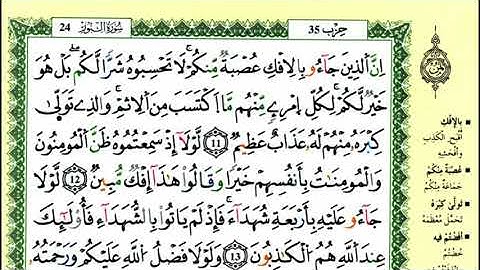 حزب 35
سُورَةُ النُّورِ 24
إِنَّ الَّذِينَ جَاءُو بِالِافْكِ عُصْبَةٌ مِّنكُمْ لَا تَحْسِبُوهُ شَرّاً لَّكُم بَلْ هُوَ
خَيْرٌ لَّكُمْ لِكُلِّ امْرِئٍ مِّنْهُم مَّا اكْتَسَبَ مِنَ الِاثْمِ وَالَّذِي تَوَلَّىٰ
كِبْرَهُ مِنْهُمْ لَهُ عَذَابٌ عَظِيمٌ 11 لَّوْلَا إِذْ سَمِعْتُمُوهُ ظَنَّ الْمُومِنُونَ
وَالْمُومِنَٰتُ بِأَنفُسِهِمْ خَيْراً وَقَالُوا هَٰذَا إِفْكٌ مُّبِينٌ 12 لَّوْلَا
جَاءُو عَلَيْهِ بِأَرْبَعَةِ شُهَدَاءَ فَإِذْ لَمْ يَاتُوا بِالشُّهَدَاءِ فَأُوْلَٰئِكَ
عِندَ اللَّهِ هُمُ الْكَٰذِبُونَ 13 وَلَوْلَا فَضْلُ اللَّهِ عَلَيْكُمْ وَرَحْمَتُهُ
بِالِافْكِ
أَقْبَحِ الْكَذِبِ
وَأَفْحَشِهِ
عُصْبَةٌ مِّنكُمْ
جَمَاعَةٌ مِنْكُمْ
تَوَلَّىٰ كِبْرَهُ
تَحَمَّلَ مُعْظَمَهُ
أَفَضْتُمْ فِيهِ